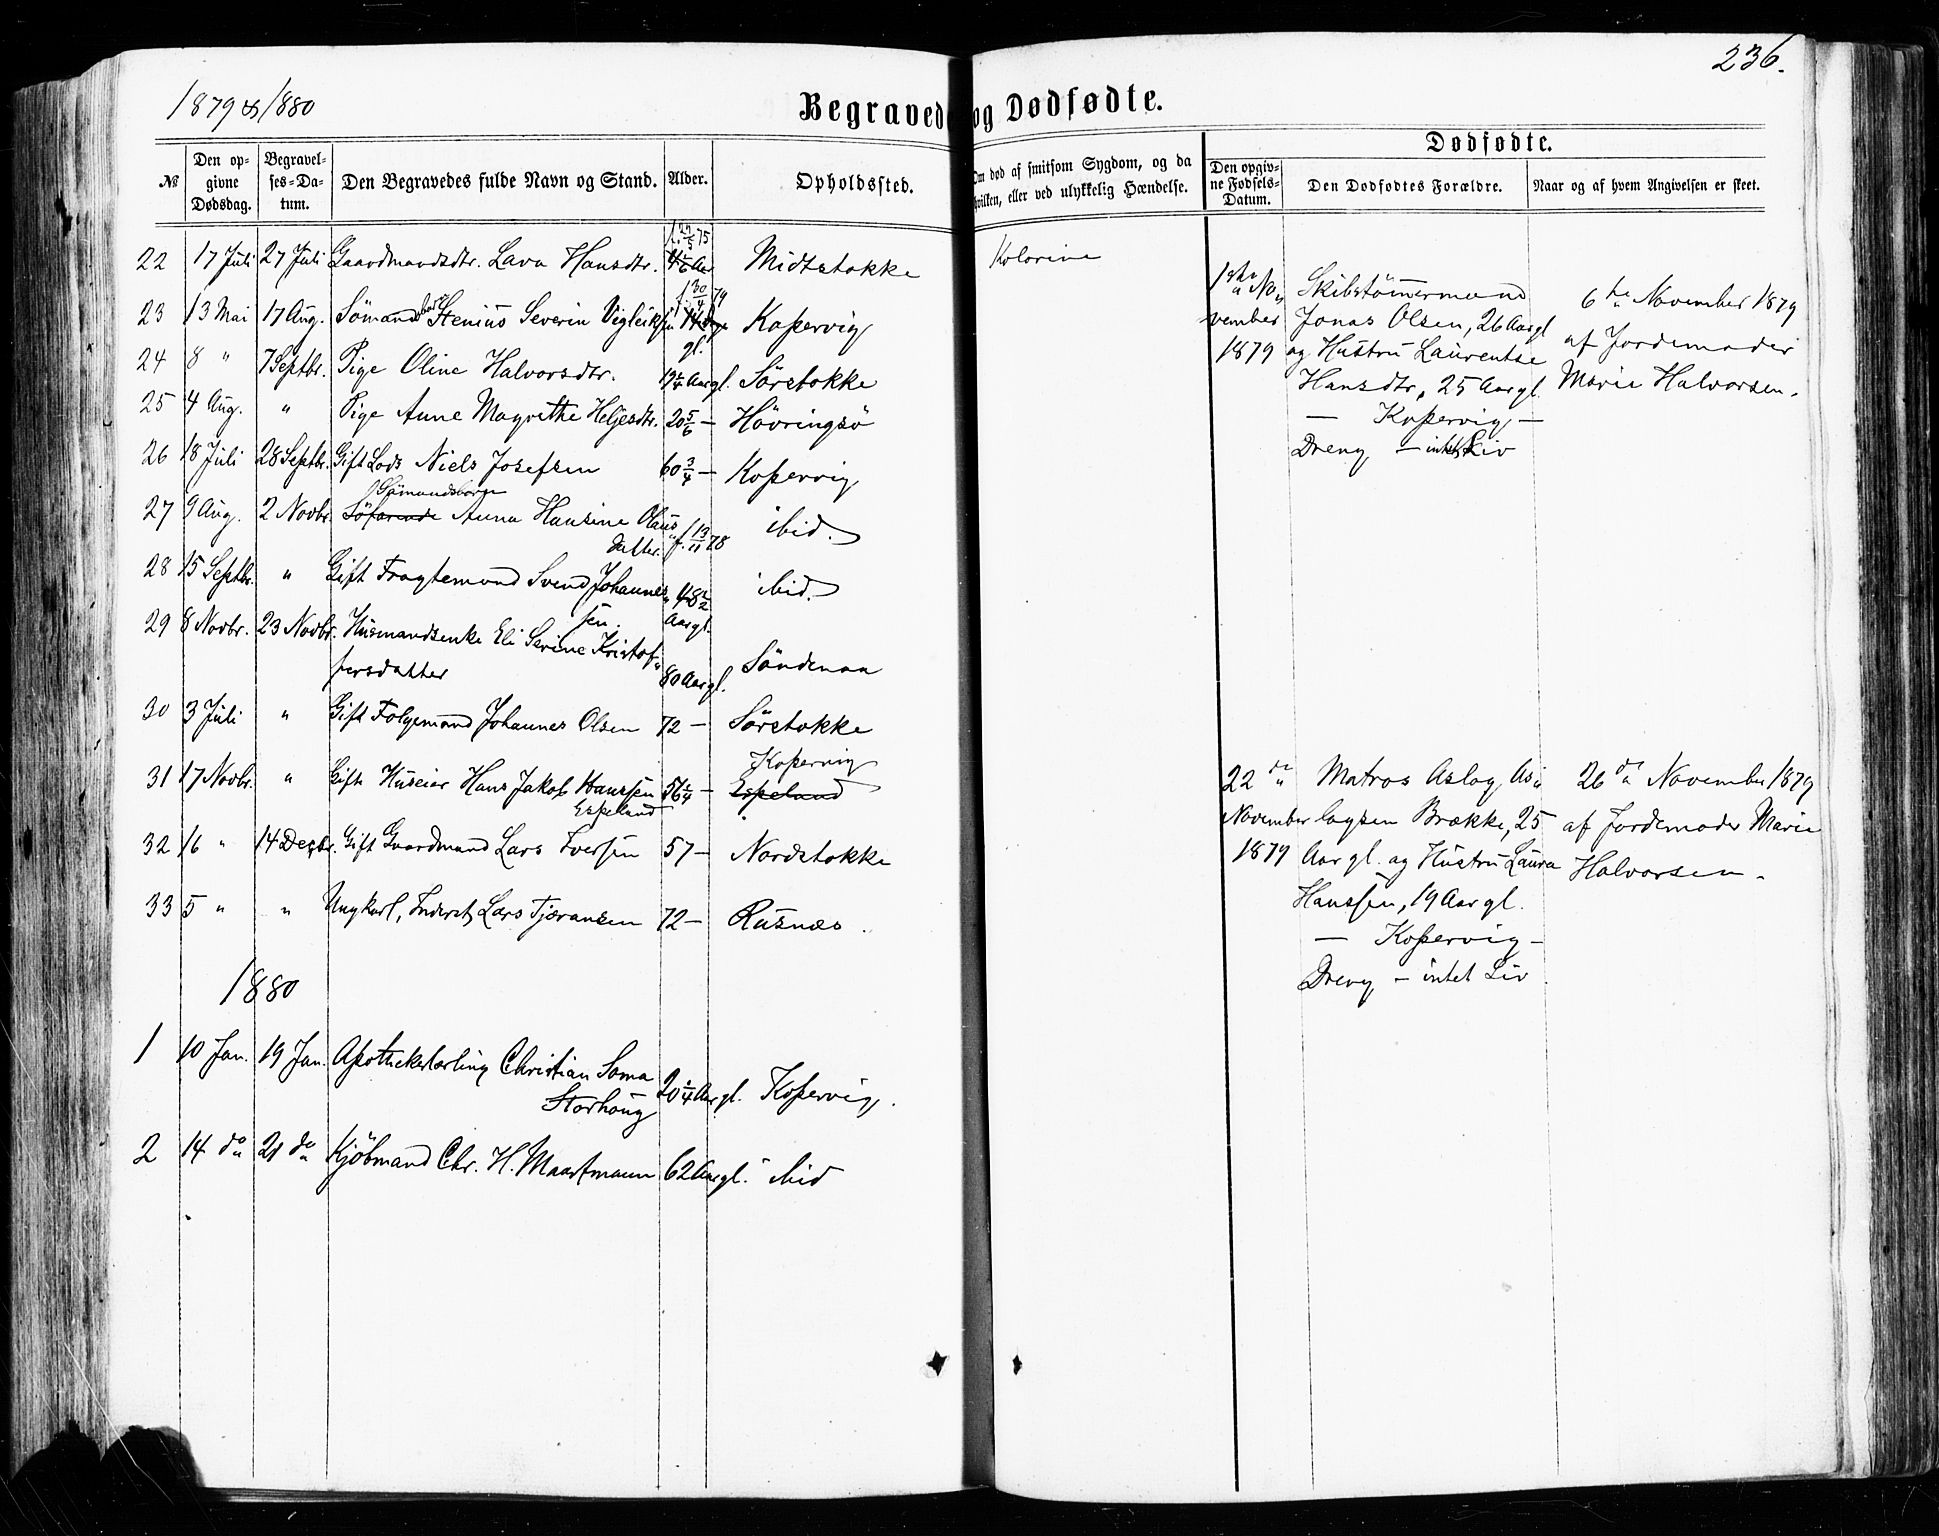 236.
1879 & 1880
Begravede og Dødfødte.
Dødfødte.
№
Den op-
givne
Dødsdag.
Begravel-
ses-Da-
tum.
Den Begravedes fulde Navn og Stand.
Alder.
Opholdssted.
Om død af smitsom Sygdom, og da
hvilken, eller ved ulykkelig Hændelse.
Den opgiv-
ne Fødsels-
Datum.
Den Dødfødtes Forældre.
Naar og af hvem Angivelsen er skeet.
f. 27/5 75
22 17 Juli 27 Juli Gaardmandsdtr. Lava Hansdtr. 4 1/6 Aar Midtstokke
f. 30/4 79
23 13 Mai 17 Aug. Sömandsbarn Stenius Severin Vigleiksen 14 Dage gl. Kopervig
24 8 " 7 Septbr. Pige Oline Halvorsdtr. 19 1/4 Aar gl. Sörstokke
25 4 Aug. " Pige Anne Magrethe Heljesdtr. 20 5/6 — Hövringsö
26 18 Juli 28 Septbr. Gift Lods Niels Josefsen 60 3/4 — Kopervig
Sömandsbarn
27 9 Aug. 2 Novbr. Söfarende Anna Hansine Olaus
datter. f. 13/11 78 ibid.
28 15 Septbr. " Gift Fragtemand Svend Johannes
sen. 48 1/2 Aar gl. ibid.
29 8 Novbr. 23 Novbr. Husmandsenke Eli Serine Kristof
fersdatter 80 Aar gl. Söndenaa
30 3 Juli " Gift Folgemand Johannes Olsen 72 — Sörstokke
Kopervig
31 17 Novbr. " Gift Huseier Hans Jakob Hanssen 56 1/4 — Espeland
Espeland
32 16 " 14 Decbr. Gift Gaardmand Lars Iversen 57 — Nordstokke
33 5 " " Ungkarl, Inderst, Lars Tjeransen 72 — Rusnæs.
1880
1 10 Jan. 19 Jan. Apothekerlærling Christian Soma
Storhoug 20 1/4 Aar gl. Kopervig.
2 14 do 21 do Kjöbmand Chr. H. Maartmann 62 Aar gl. ibid
1ste No
vember
1879
Skibstömmermand
Jonas Olsen, 26 Aar gl
og Hustru Laurentse
Hansdtr, 25 Aar gl.
— Kopervig —
Dreng — intet Liv
6te November 1879
af Jordemoder
Marie Halvorsen.
22de
November
1879
Matros Aslag As
lagsen Brække, 25
Aar gl. og Hustru Laura
Hanssen, 19 Aar gl.
— Kopervig —
Dreng — intet Liv.
26de November 1879
af Jordemoder Marie
Halvorsen.